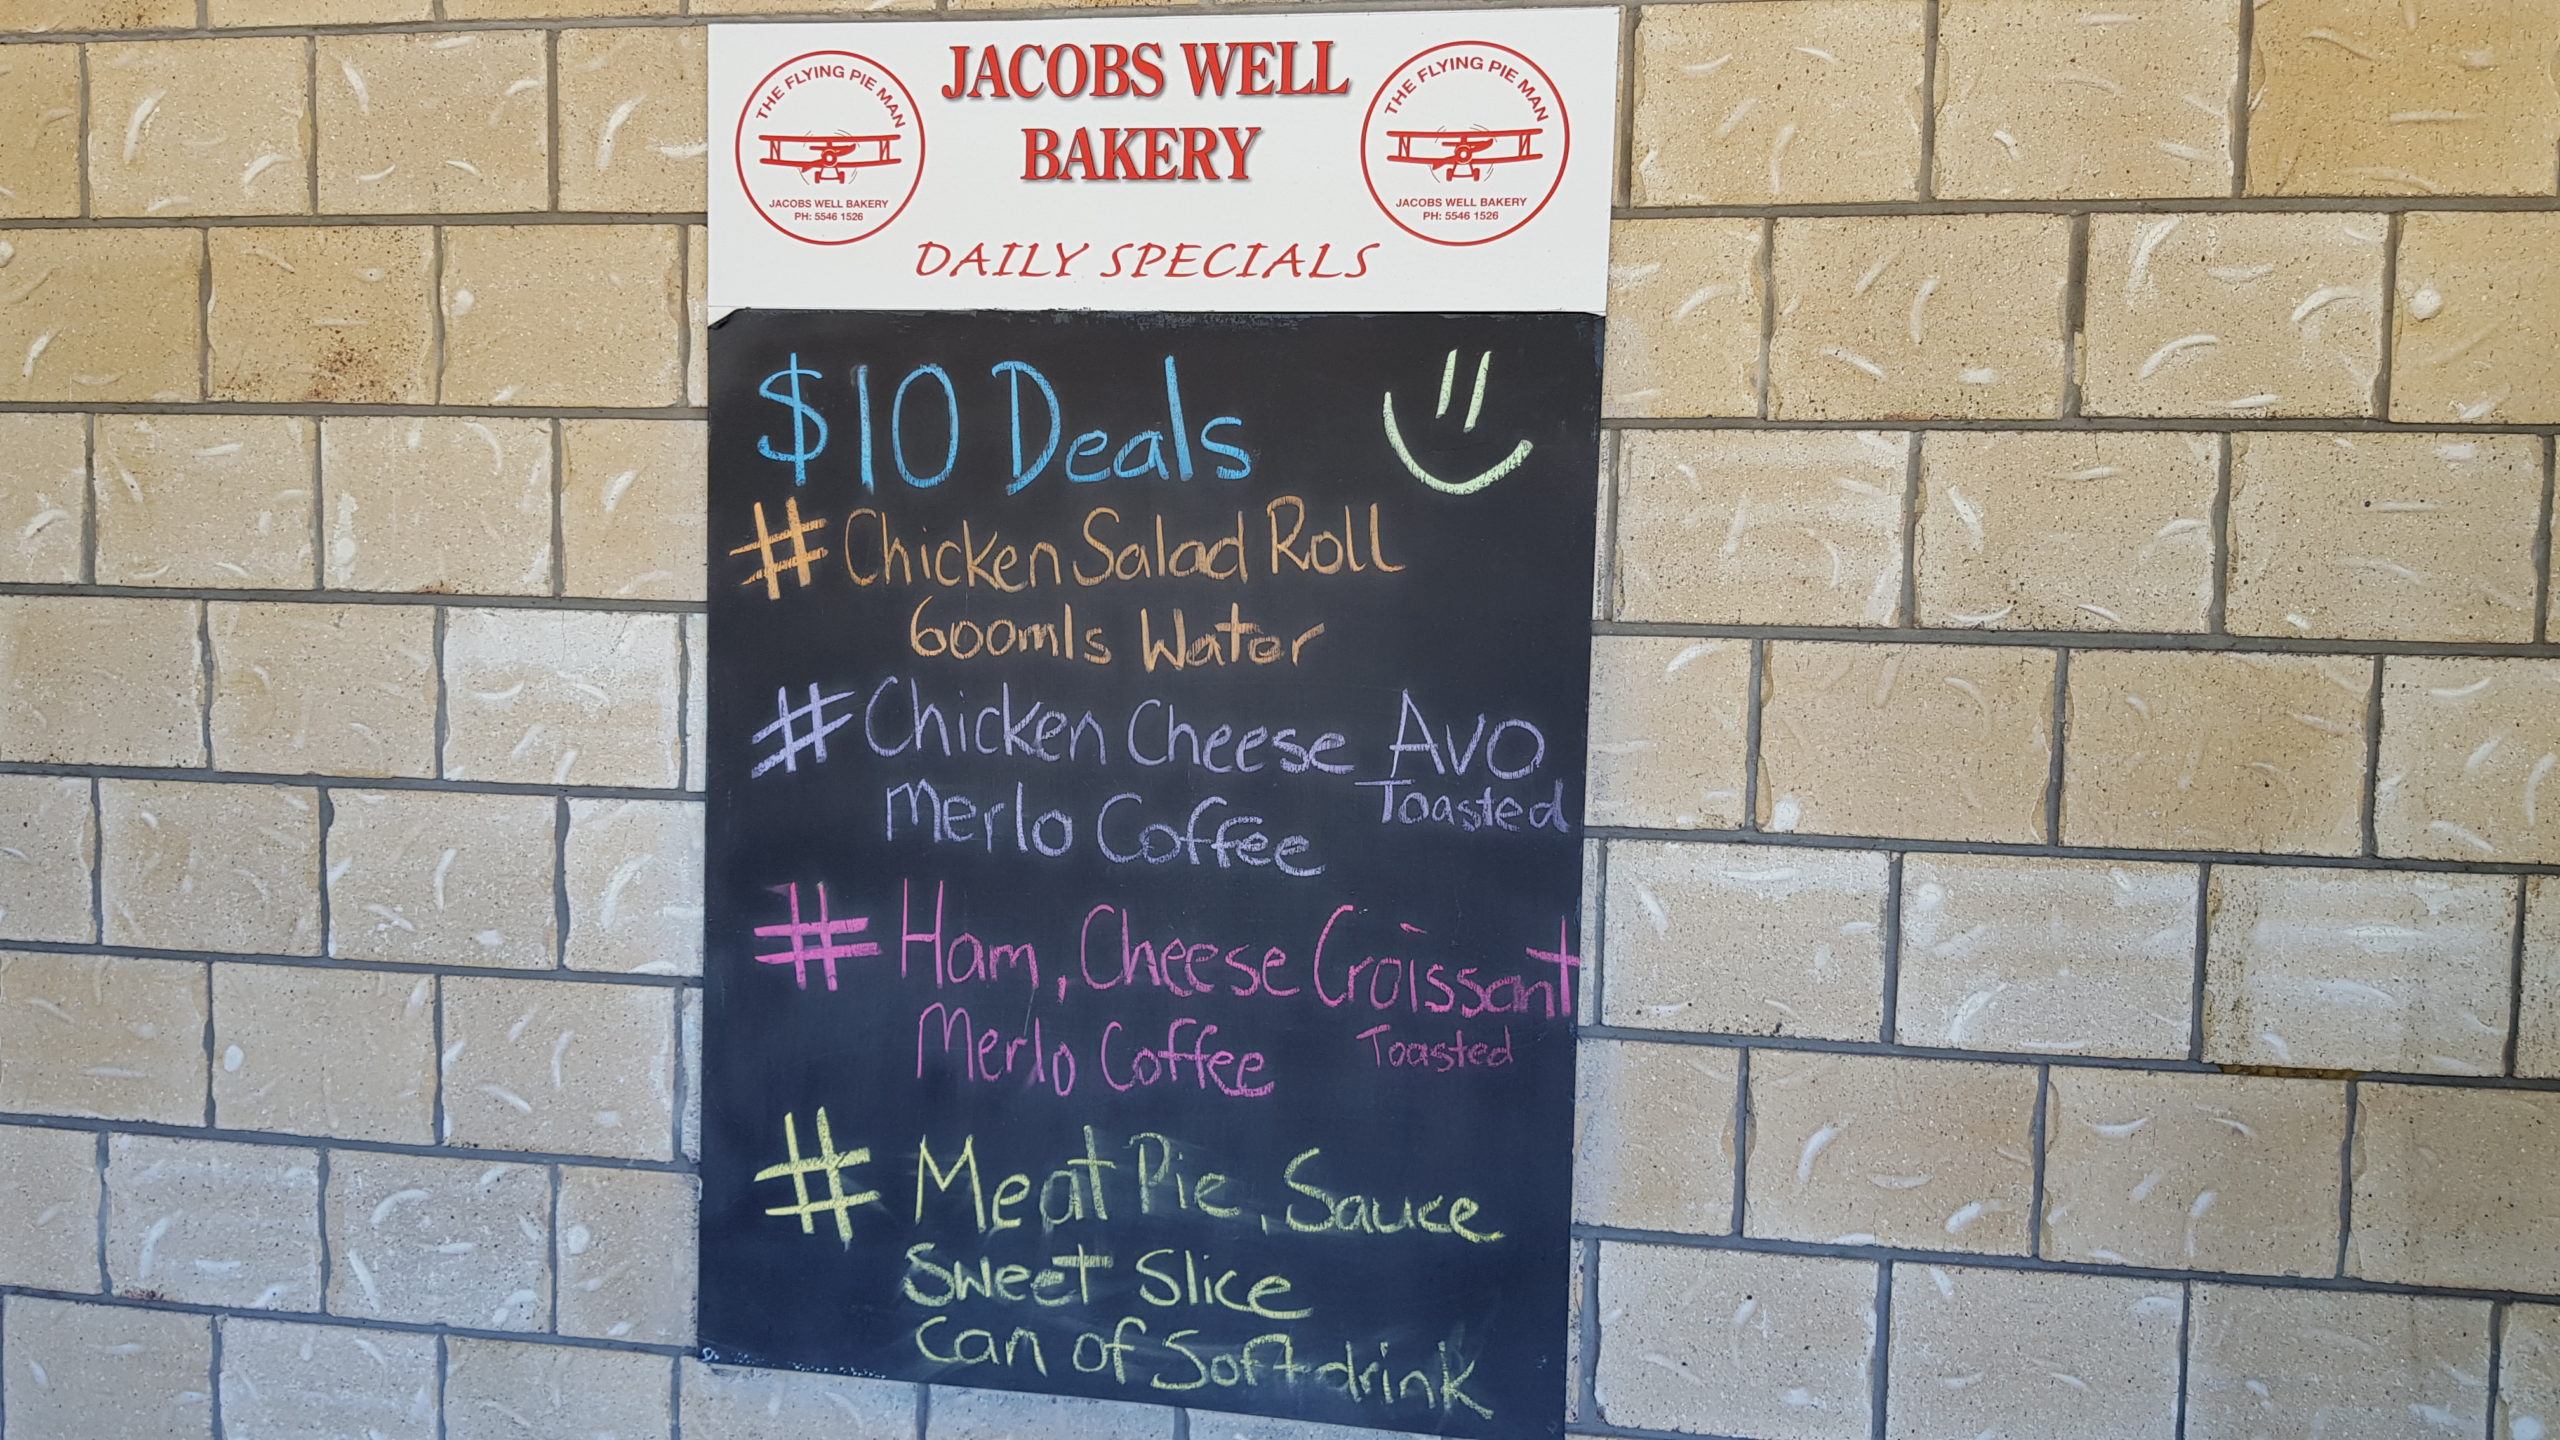 JACOBS WELL
BAKERY
THE FLYING PIE MAN
JACOBS WELL BAKERY
PH: 5546 1526
THE FLYING PIE MAN
JACOBS WELL BAKERY
PH: 5546 1526
DAILY SPECIALS
$10 Deals
# Chicken Salad Roll
600mls Water
# Chicken Cheese Avo
Toasted
Merlo Coffee
# Ham, Cheese Croissant
Merlo Coffee Toasted
# Meat Pie, Sauce
Sweet Slice
Can of Softdrink